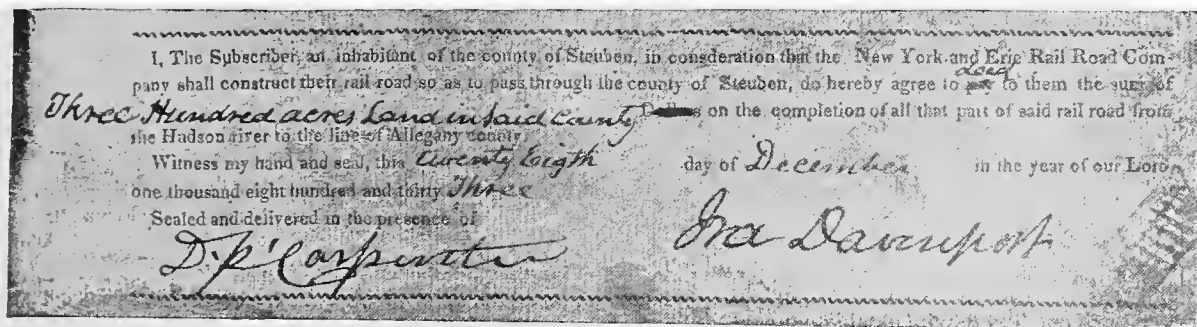 I, The Subscriber, an inhabitant of the county of Steuben, in consderation that the New York and Erie Rail Road Com-
pany shall construct their rail road so as to pass through the county of Steuben, do hereby agree to pay deed to them the sum of
Three Hundred acres Land in said county on the completion of all that part of said rail road from
the Hudson river to the line of Allegany county.
Witness my hand and seal, this twenty Eigth day of December in the year of our Lord
one thousand eight hundred and thirty Three
Sealed and delivered in the presence of
D. P. Carpenter Ira Davenport